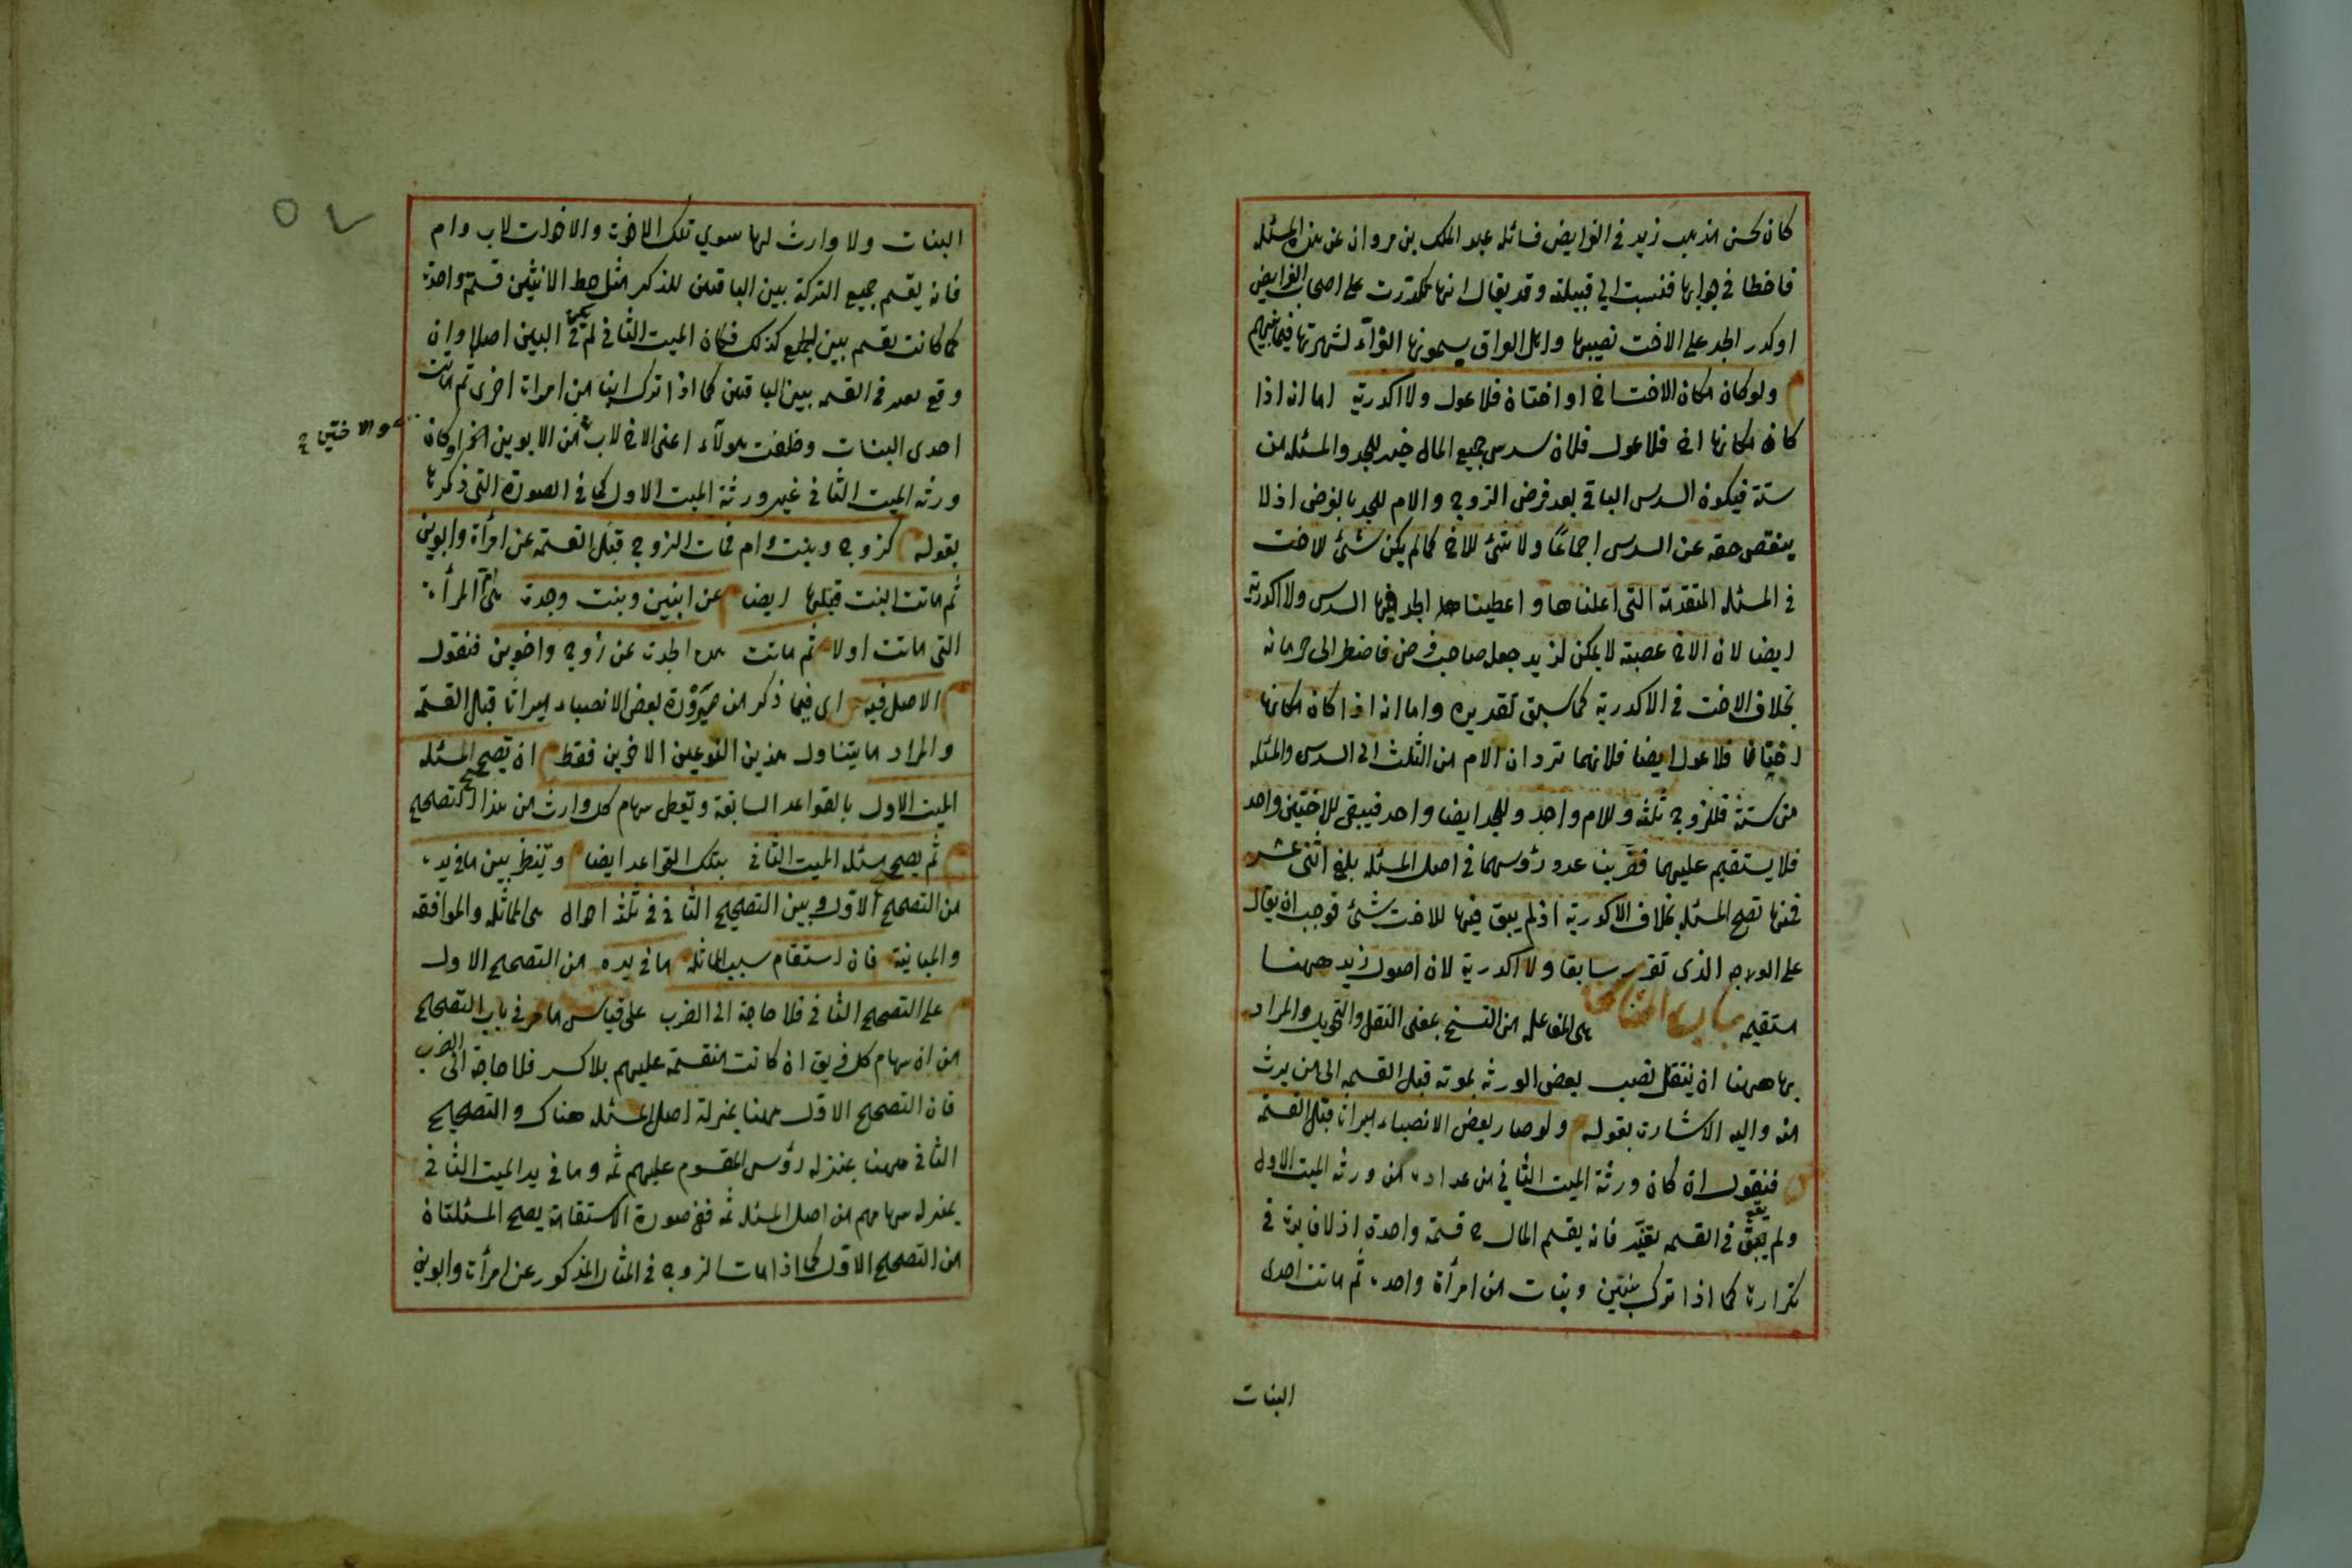 كان يحسن مذهب زيد في الفرايض فسائله عبد الملك بن مروان عن هذه المسئله
فاخطا في جوابها فنسبت الي قبيلته وقد يقال انها تكدرت على اصحاب الفرايض
او كدر الجد على الاخت نصيبها واهل العراق يسمونها الغرّآء لشهرتها فيما بينهم
ولو كان مكان الاخت اخ او اختان فلا عول ولا اكدرية اما انه اذا
كان مكانها اخ فلا عول فلان سدس جميع المال خير للجد والمسئله من
ستة فيكون السدس الباقي بعد فرض الزوج والام للجد بالفرض اذ لا
ينقص حقه عن السدس اجماعًا ولا شئ للاخ كما لم يكن شئ للاخت
في المسئله المتقدمة التي اعلناها واعطينا الجد فيها السدس ولا اكدرية
ايضا لان الاخ عصبة لا يمكن لزيد جعله صاحب فرض فاضطر الى حرمانه
بخلاف الاخت في الاكدرية كما سبق تقديره واما انه اذا كان مكانها
اختان فلا عول ايضا فلانهما تردان الام من الثلث الى السدس والمسئله
من ستة فللزوج ثلثه وللام واحد وللجد ايضا واحد فيبقى للاختين واحد
فلا يستقيم عليهما فضربنا عدد رؤسهما في اصل المسئله بلغ اثنى عشر
فمنها تصح المسئله بخلاف الاكدرية اذ لم يبق فيها للاخت شئ فوجب ان يقال
على الوجه الذى تقرر سابقا ولا اكدرية لان اصول زيد ههنا
مستقيمه باب المناسخة هى المفاعله من النسخ بمعنى النقل والتحويل والمراد
بها ههنا ان ينتقل نصيب بعض الورثه بموته قبل القسمه الى من يرث
منه واليه الاشارة بقوله ولو صار بعض الانصباء ميراثا قبل القسمة
فنقول ان كان ورثة الميت الثاني من عداه من ورثه الميت الاول
ولم يقع في القسمه تغيّر فانه يقسم المال ح قسمة واحدة اذ لا فايدة في
تكرارها كما اذا ترك بنين وبنات من امرأة واحده ثم ماتت احدى
البنات
البنات ولا وارث لها سوي تلك الاخوة والاخوات لاب وام
فانه يقسم جميع التركة بين الباقين للذكر مثل حظ الانثيين قسمة واحدة
كما كانت تقسم بين الجميع كذلك فكان الميت الثاني لم يكن في البين اصلا وان
وقع بعد في القسمه بين الباقين كما اذا ترك ابنا من امراة اخرى ثم ماتت
احدى البنات وخلفت هولآء اعنى الاخ لاب من الابوين او كان
والاختين ح
ورثه الميت الثاني غير ورثة الميت الاول كما في الصورة التي ذكرها
بقوله كزوج وبنت وام فمات الزوج قبل القسمة عن امرأة وابوين
ثم ماتت البنت قبلها ايضا عن ابنين وبنت وجدة هي المرأة
التي ماتت اولا ثم ماتت هذه الجدة عن زوج واخوين فنقول
الاصل فيه اى فيما ذكر من صيرورة بعض الانصباء ميراثا قبل القسمة
والمراد ما يتناول هذين النوعين الاخرين فقط ان تصح المسئله
الميت الاول بالقواعد السابقة وتعطى سهام كل وارث من هذا التصحيح
ثم يصح مسئله الميت الثاني بتلك القواعد ايضا وينظر بين ما في يده
من التصحيح الاول وبين التصحيح الثاني في ثلثه احوال هى المماثله والموافقه
والمباينة فان استقام سبب المماثله ما في يده من التصحيح الاول
على التصحيح الثاني فلا حاجة الى الضرب على قياس ما مر في باب التصحيح
من ان سهام كل فريق ان كانت منقسمة عليهم بلا كسر فلا حاجة الى الضرب
فان التصحيح الاول ههنا بمنزلة اصل المسئله هناك والتصحيح
الثاني ههنا بمنزله رؤس المقسوم عليهم ثمه وما في يد الميت الثاني
بمنزله سهامهم من اصل المسئله ثمه ففي صورة الاستقامة يصح المسئلتان
من التصحيح الاول كما اذا مات الزوج في المثال المذكور عن امرأة وابوين